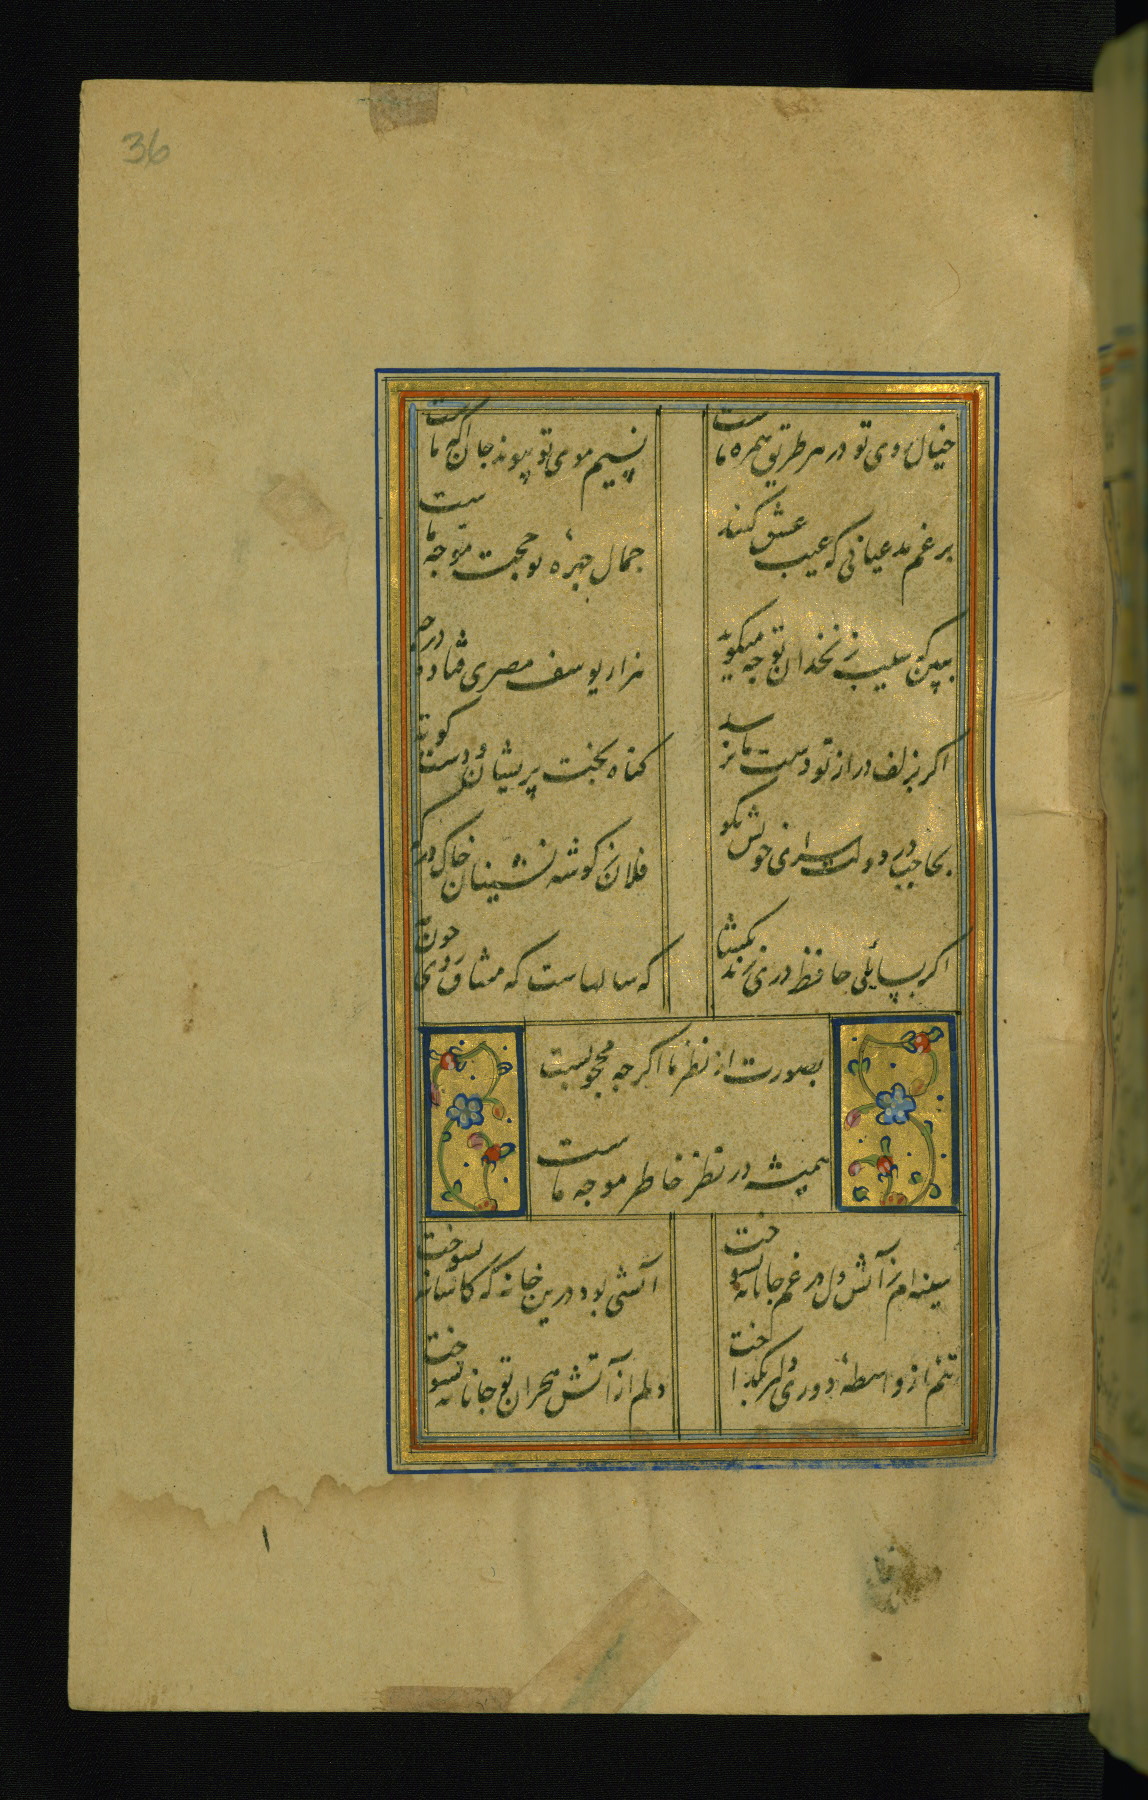 36
خیال روی تو در هر طریق همره ماست
نسیم موی تو پیوند جان آگه ماست
برغم مدعیانی که عیب عشق کنند
جمال چهرهٔ تو حجت موجه ماست
ببین که سیب زنخدان تو چه میکوید
هزار یوسف مصری فتاده در چه
اکر بزلف دراز تو دست ما نرسد
کناه بخت پریشان و دست کوته
بحاجب در دولت سرای خویش بکو
فلان ز کوشه نشینان خاک در که
بصورت از نظر ما اکرچه محجوبست
همیشه در نظر خاطر موجه ماست
اکر بسائلی حافظ دری زند بکشا
که سالهاست که مشتاق روی چون مه
سینه ام ز آتش دل در غم جانانه بسوخت
آتشی بود درین خانه که کاشانه بسوخت
تنم از واسطهٔ دوری دلبر بکداخت
دلم از آتش هجران تو جانانه بسوخت